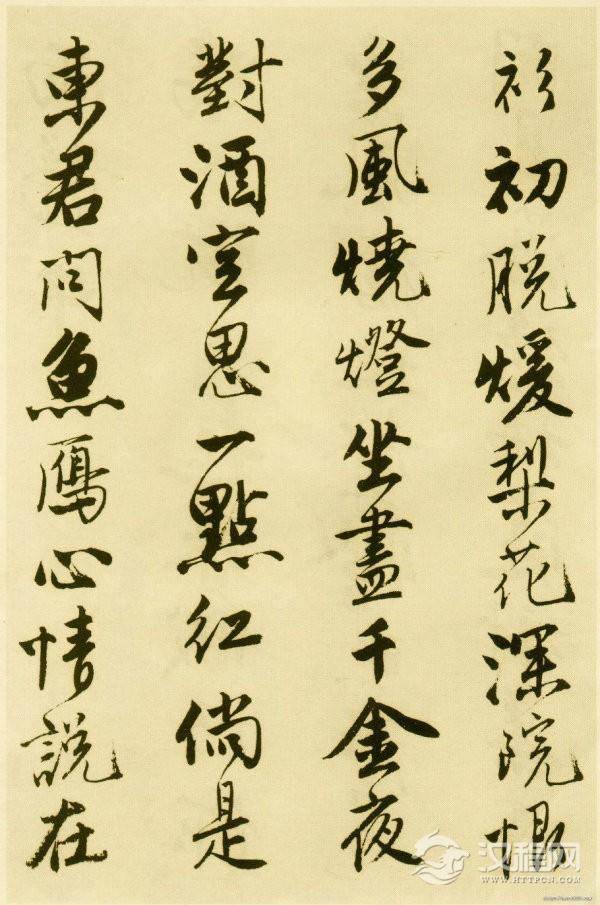 衫初脱煖梨花深院恨
多風燒燈坐盡千金夜
對酒空思一點紅倘是
東君問魚鴈心情說在
汉程网
WWW.HTTPCN.COM